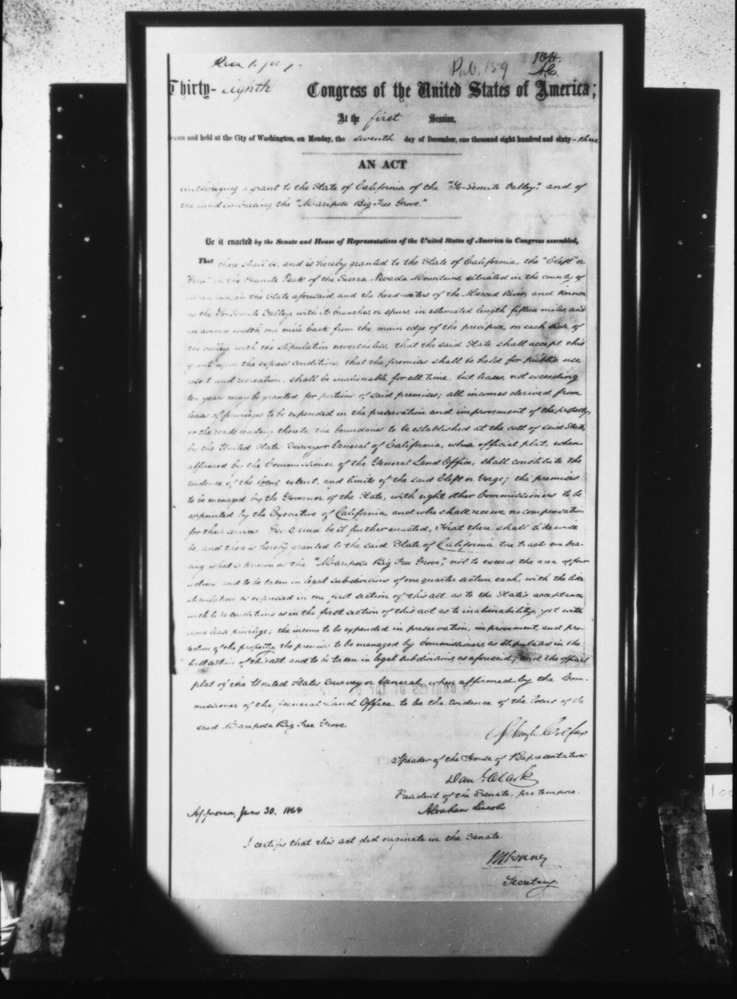 Pub. 159
Thirty-eighth Congress of the United States of America;
At the first Session,
and held at the City of Washington, on Monday, the seventh day of December, one thousand eight hundred and sixty-three
AN ACT
authorizing a grant to the State of California of the "Yo-Semite Valley," and of
the land embracing the "Mariposa Big Tree Grove."
Be it enacted by the Senate and House of Representatives of the United States of America in Congress assembled,
That there shall be, and is hereby granted to the State of California the "Cleft" or
"Gorge" in the Granite Peak of the Sierra Nevada Mountains, situated in the county of
in the State aforesaid and the head-waters of the Merced River, and known
as the Yo-Semite Valley, with its branches or spurs in estimated length fifteen miles, and
in average width one mile back from the main edge of the precipice, on each side of
the valley with the stipulation nevertheless, that the said State shall accept this
grant upon the express conditions that the premises shall be held for public use,
resort and recreation, shall be inalienable for all time, but leases not exceeding
ten years may be granted for portions of said premises; all incomes derived from
leases of privileges to be expended in the preservation and improvement of the property,
or the roads leading thereto; the boundaries to be established at the cost of said State
by the United States Surveyor General of California, whose official plat, when
affirmed by the Commissioner of the General Land Office, shall constitute the
evidence of the locus, extent, and limits of the said Cleft or Gorge; the premises
to be managed by the Governor of the State, with eight other Commissioners to be
appointed by the Executive of California, and who shall receive no compensation
for their services. Sec. 2. And be it further enacted, That there shall likewise
be, and there is hereby granted to the said State of California the tracts embra-
cing what is known as the "Mariposa Big Tree Grove," not to exceed the area of four
sections and to be taken in legal subdivisions of one quarter section each, with the like
stipulation as expressed in the first section of this act as to the State's acceptance,
with like conditions as in the first section of this act as to inalienability, yet with
same lease privilege; the income to be expended in preservation, improvement, and pro-
tection of the property; the premises to be managed by Commissioners as stipulated in the
first section of this act and to be taken in legal subdivisions as aforesaid; and the official
plat of the United States Surveyor General, when affirmed by the Com-
missioner of the General Land Office, to be the evidence of the locus of the
said Mariposa Big Tree Grove.
Schuyler Colfax
Speaker of the House of Representatives
Dan Clark
President of the Senate, pro tempore.
Approved, June 30, 1864
Abraham Lincoln
I certify that this act did originate in the Senate.
J W Forney
Secretary.